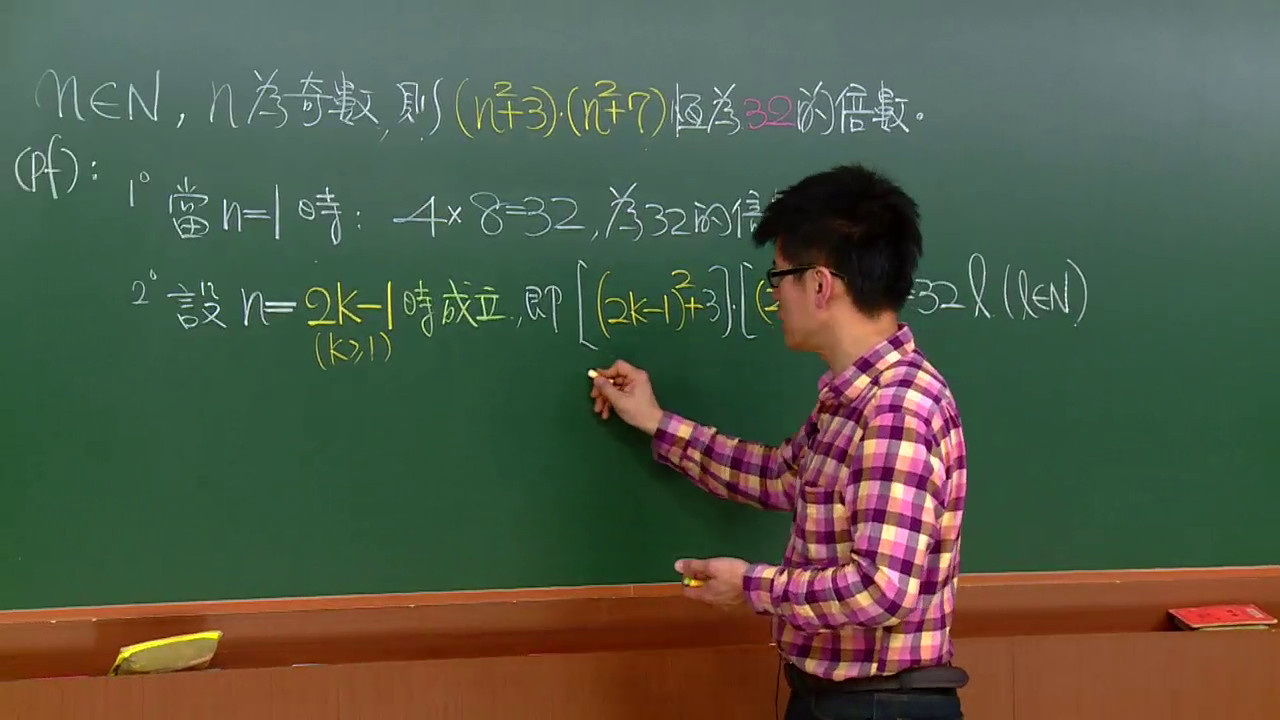 n∈N, n為奇數,則(n²+3)·(n²+7)恆為32的倍數。
(pf):
1° 當n=1時: 4×8=32,為32的倍
2° 設n=2k-1時成立,即[(2k-1)²+3]·[(2 =32l (l∈N)
(k≥1)